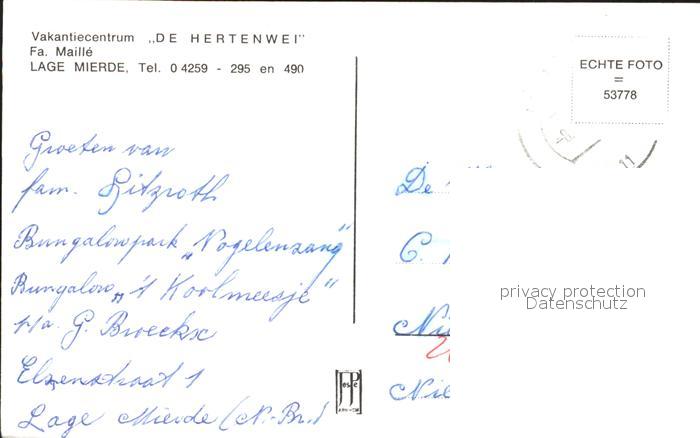 Vakantiecentrum „DE HERTENWEI"
Fa. Maillé
LAGE MIERDE, Tel. 0 4259 - 295 en 490
ECHTE FOTO
=
53778
11
Groeten van
fam. Hitzroth
Bungalowpark „Vogelenzang"
Bungalow „'t Koolmeesje"
p/a. G. Broeckx
Elzenstraat 1
Lage Mierde (N.-Br.)
De
C.
privacy protection
Datenschutz
Nie
Nie